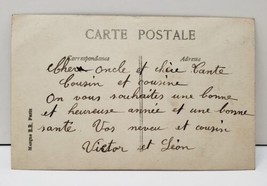 CARTE POSTALE
Correspondance Adresse
Cher Oncle et chère Tante
Cousin et cousine
On vous souhaites une bonne
et heureuse année et une bonne
santé. Vos neveu et cousin
Victor et Léon
Marque E.R. Paris